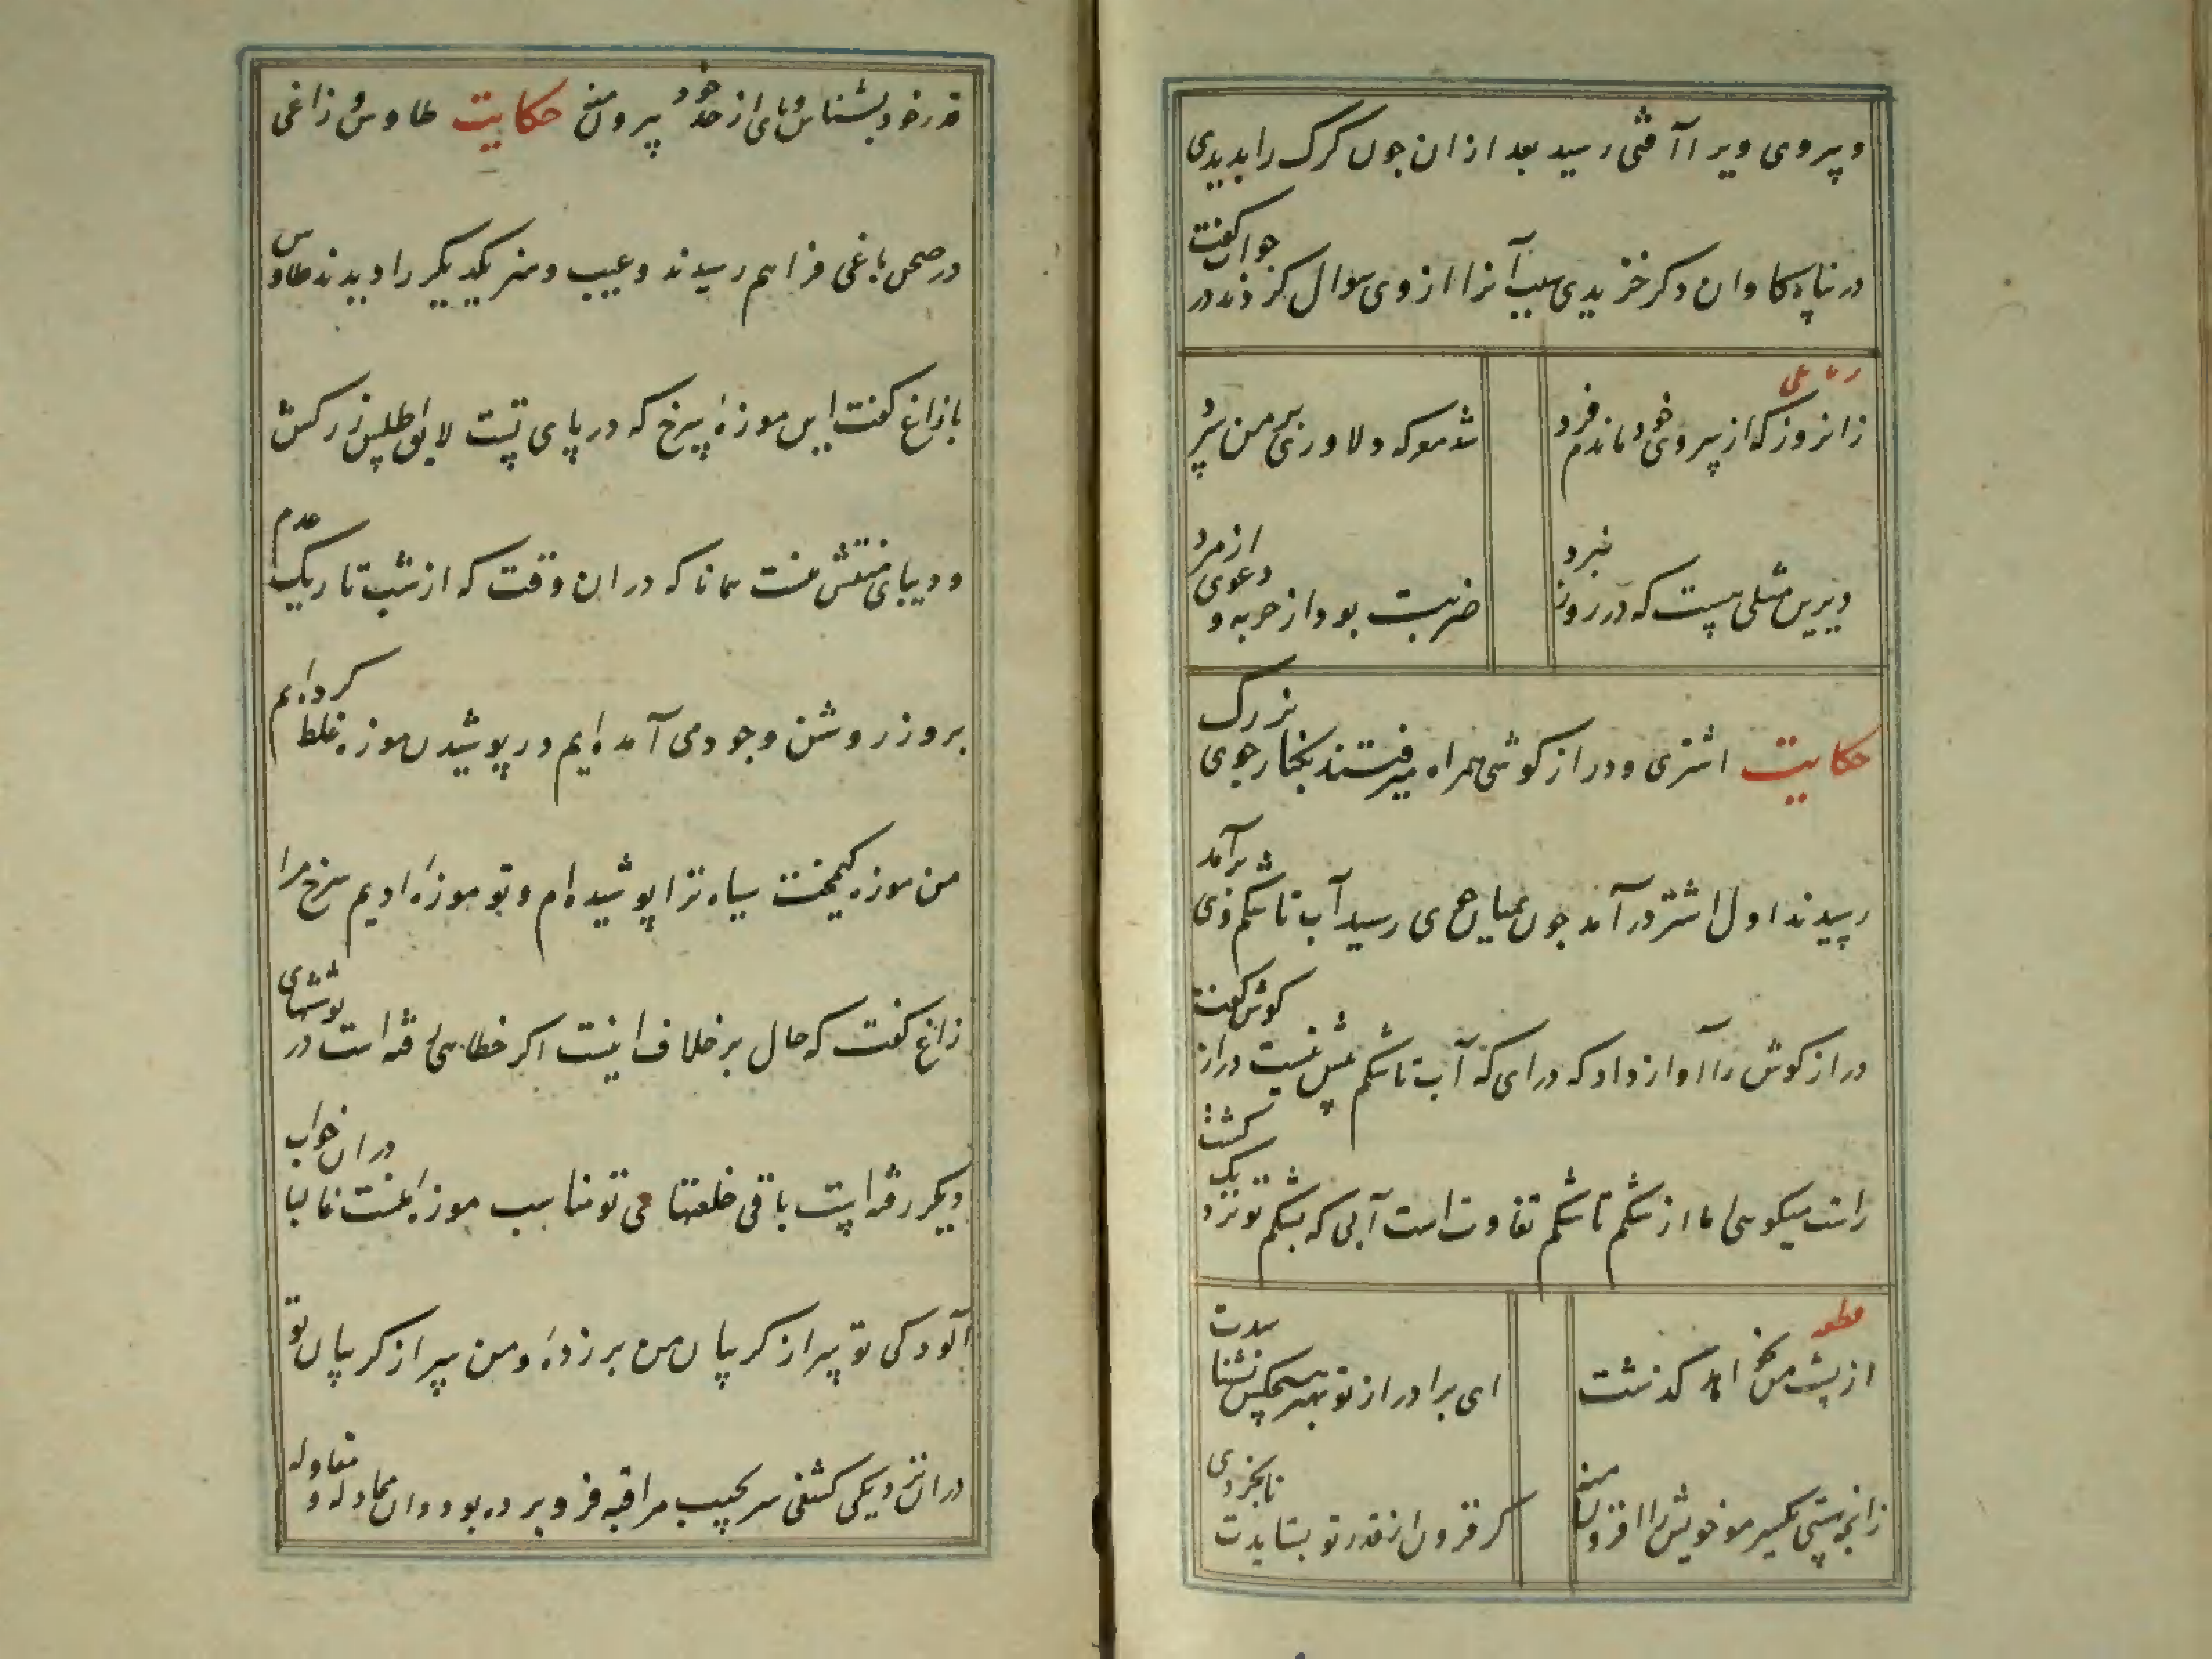 و سروی ویرا آفتی رسید بعد ازان چون گرگ را بدیدی
در پناه گاوان دگر خزیدی سبب آنرا از وی سوال کردند در جواب گفت
رباعی
زانروز که از سروی خود ماندم فرد
شد معرکه دلاوری بر من سرد
دیرین مثلی هست که در روز نبرد
ضربت بود از حربه و دعوی از مرد
حکایت اشتری و درازگوشی همراه میرفتند بکنار جوی بزرگ
رسیدند اول اشتر درآمد چون بمیان جوی رسید آب تا شکم وی برآمد
درازگوش را آواز داد که درای که آب تا شکم بیش نیست درازگوش گفت
راست میگوئی اما از شکم تا شکم تفاوتست آبی که بشکم تو نزدیک گشت
از پشت من بخواهد گذشت
قطعه
ای برادر از تو بهتر هیچکس نشناسدت
زانچه هستی یکسر مو خویش را افزون منه
گر فزون از قدر تو بستایدت نابخردی
قدر خود بشناس و پای از حد خود بیرون منه حکایت طاوس و زاغی
در صحن باغی فراهم رسیدند و عیب و هنر یکدیگر را دیدند طاوس
با زاغ گفت این موزه سرخ که در پای تست لایق اطلس زرکش
و دیبای منقش منست همانا که در ان وقت که از شب تاریک عدم
بروز روشن وجود می آمده ایم در پوشیدن موزه غلط کرده ایم
من موزه کیمخت سیاه ترا پوشیده ام و تو موزه ادیم سرخ مرا
زاغ گفت که حال برخلاف اینست اگر خطایی رفته است در پوششهای
دیگر رفته است باقی خلعتهای تو مناسب موزه منست غالبا در ان خواب
آلودگی تو سر از گریبان من برزده و من سر از گریبان تو
در ان نزدیکی کشفی سر بجیب مراقبه فرو برده بود و ان مجادله و مقاوله